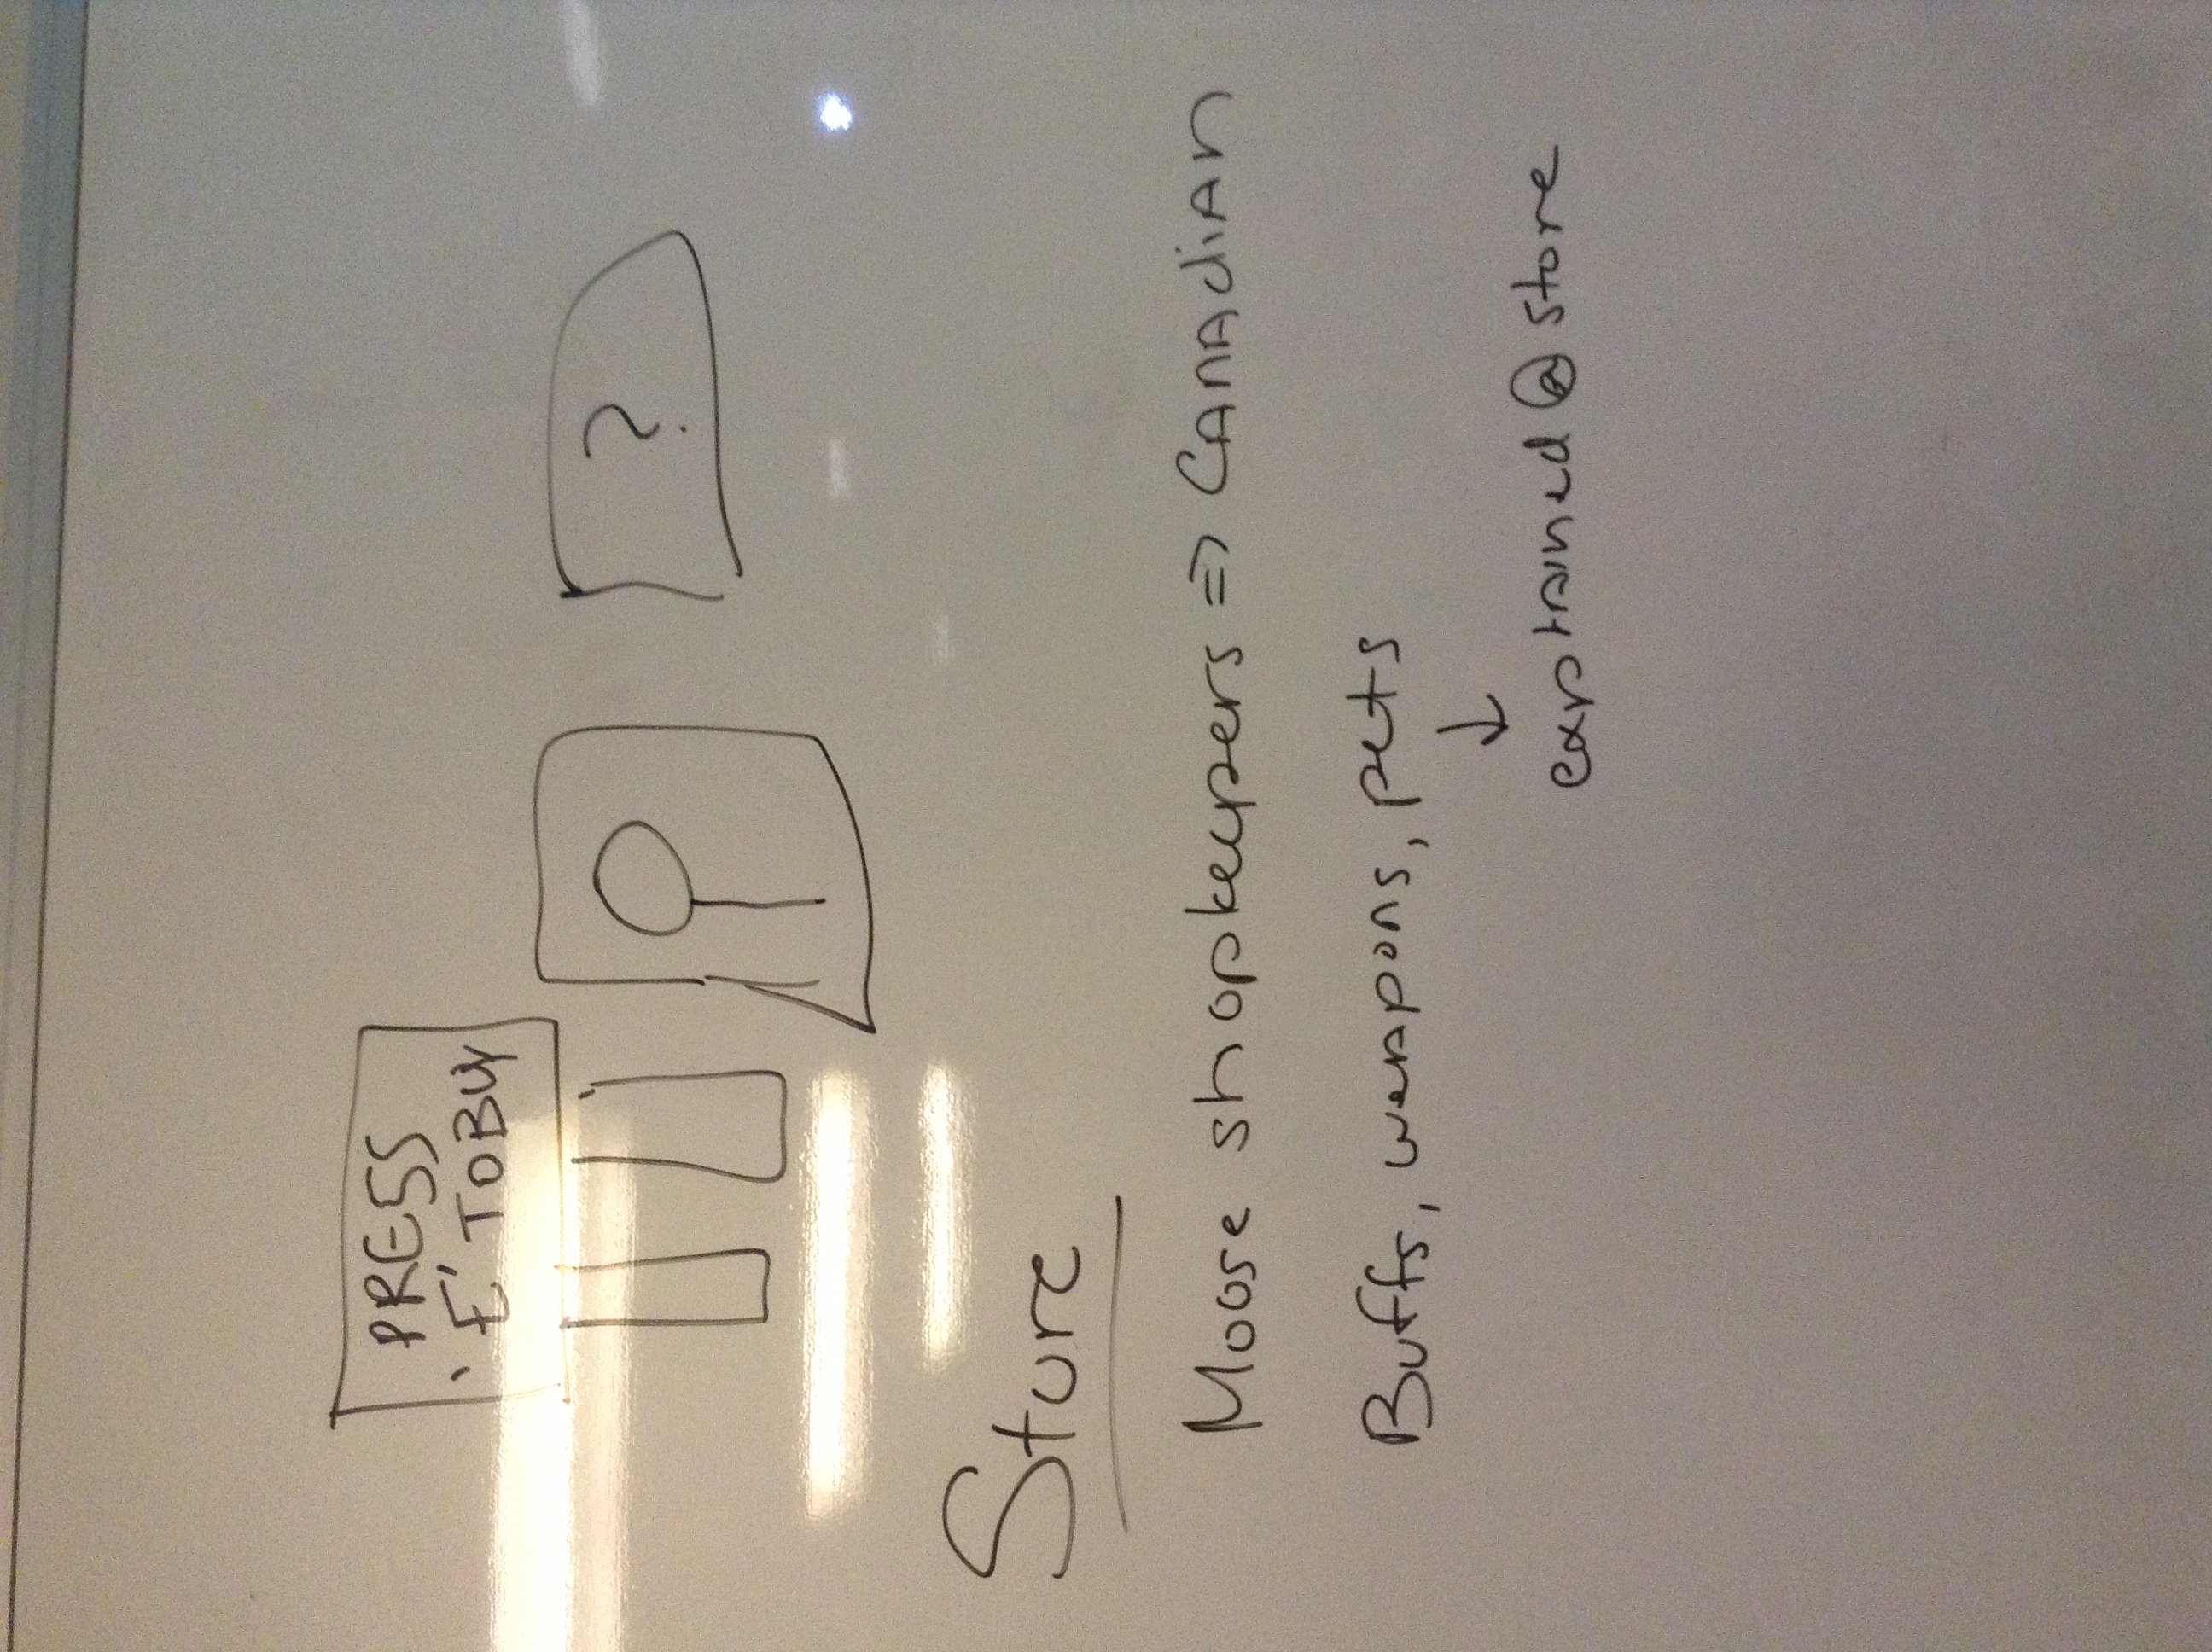 PRESS
'E' TO BUY
?
Store
Moose shopkeepers => CANADIAN
Buffs, weapons, pets
↓
explained @ store